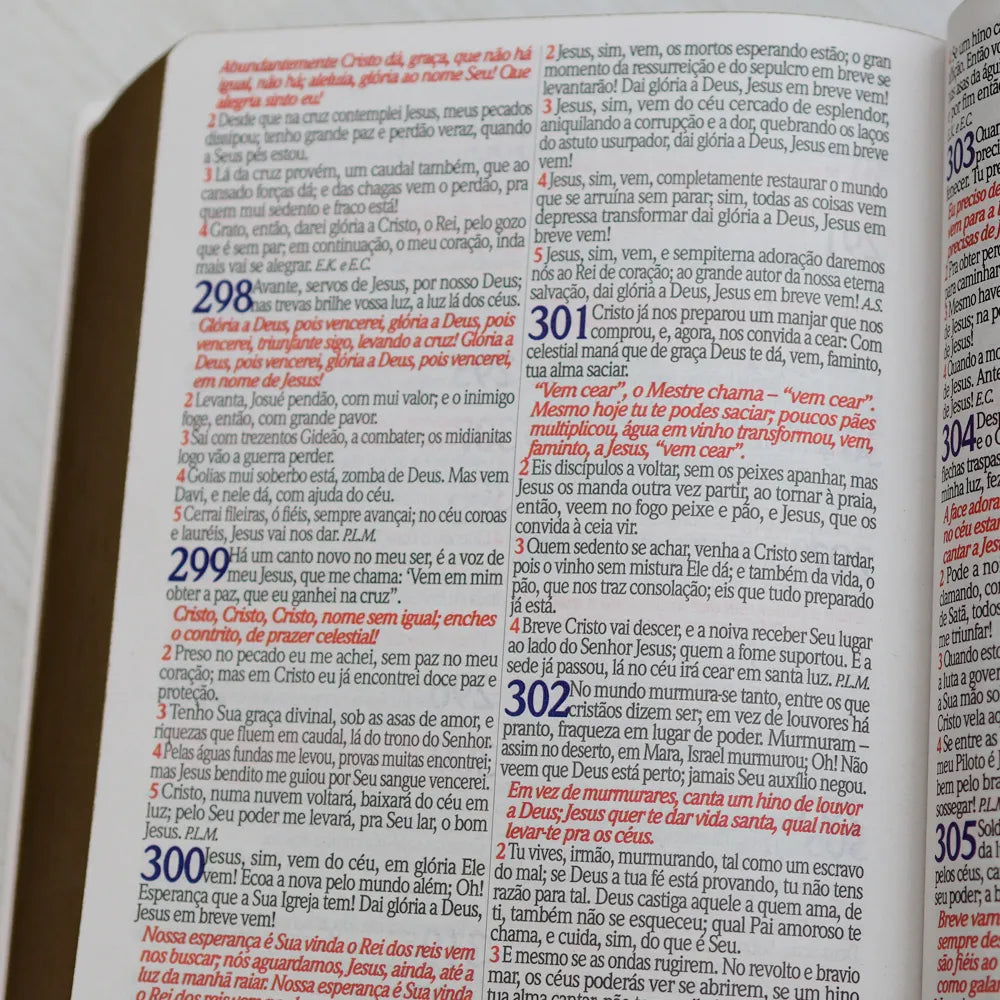 Abundantemente Cristo dá, graça, que não há
igual, não há; aleluia, glória ao nome Seu! Que
alegria sinto eu!
2 Desde que na cruz contemplei Jesus, meus pecados
dissipou; tenho grande paz e perdão veraz, quando
a Seus pés estou.
3 Lá da cruz provém, um caudal também, que ao
cansado forças dá; e das chagas vem o perdão, pra
quem mui sedento e fraco está!
4 Grato, então, darei glória a Cristo, o Rei, pelo gozo
que é sem par; em continuação, o meu coração, inda
mais vai se alegrar. E.K. e E.C.
298 Avante, servos de Jesus, por nosso Deus;
nas trevas brilhe vossa luz, a luz lá dos céus.
Glória a Deus, pois vencerei, glória a Deus, pois
vencerei, triunfante sigo, levando a cruz! Glória a
Deus, pois vencerei, glória a Deus, pois vencerei,
em nome de Jesus!
2 Levanta, Josué pendão, com mui valor; e o inimigo
foge, então, com grande pavor.
3 Sai com trezentos Gideão, a combater; os midianitas
logo vão a guerra perder.
4 Golias mui soberbo está, zomba de Deus. Mas vem
Davi, e nele dá, com ajuda do céu.
5 Cerrai fileiras, ó fiéis, sempre avançai; no céu coroas
e lauréis, Jesus vai nos dar. P.L.M.
299 Há um canto novo no meu ser, é a voz de
meu Jesus, que me chama: “Vem em mim
obter a paz, que eu ganhei na cruz”.
Cristo, Cristo, Cristo, nome sem igual; enches
o contrito, de prazer celestial!
2 Preso no pecado eu me achei, sem paz no meu
coração; mas em Cristo eu já encontrei doce paz e
proteção.
3 Tenho Sua graça divinal, sob as asas de amor, e
riquezas que fluem em caudal, lá do trono do Senhor.
4 Pelas águas fundas me levou, provas muitas encontrei;
mas Jesus bendito me guiou por Seu sangue vencerei.
5 Cristo, numa nuvem voltará, baixará do céu em
luz; pelo Seu poder me levará, pra Seu lar, o bom
Jesus. P.L.M.
300 Jesus, sim, vem do céu, em glória Ele
vem! Ecoa a nova pelo mundo além; Oh!
Esperança que a Sua Igreja tem! Dai glória a Deus,
Jesus em breve vem!
Nossa esperança é Sua vinda o Rei dos reis vem
nos buscar; nós aguardamos, Jesus, ainda, até a
luz da manhã raiar. Nossa esperança é Sua vinda
o Rei dos reis vem
2 Jesus, sim, vem, os mortos esperando estão; o gran
momento da ressurreição e do sepulcro em breve se
levantarão! Dai glória a Deus, Jesus em breve vem!
3 Jesus, sim, vem do céu cercado de esplendor,
aniquilando a corrupção e a dor, quebrando os laços
do astuto usurpador, dai glória a Deus, Jesus em breve
vem!
4 Jesus, sim, vem, completamente restaurar o mundo
que se arruína sem parar; sim, todas as coisas vem
depressa transformar dai glória a Deus, Jesus em
breve vem!
5 Jesus, sim, vem, e sempiterna adoração daremos
nós ao Rei de coração; ao grande autor da nossa eterna
salvação, dai glória a Deus, Jesus em breve vem! A.S.
301 Cristo já nos preparou um manjar que nos
comprou, e, agora, nos convida a cear: Com
celestial maná que de graça Deus te dá, vem, faminto,
tua alma saciar.
“Vem cear”, o Mestre chama – “vem cear”.
Mesmo hoje tu te podes saciar; poucos pães
multiplicou, água em vinho transformou, vem,
faminto, a Jesus, “vem cear”.
2 Eis discípulos a voltar, sem os peixes apanhar, mas
Jesus os manda outra vez partir, ao tornar à praia,
então, veem no fogo peixe e pão, e Jesus, que os
convida à ceia vir.
3 Quem sedento se achar, venha a Cristo sem tardar,
pois o vinho sem mistura Ele dá; e também da vida, o
pão, que nos traz consolação; eis que tudo preparado
já está.
4 Breve Cristo vai descer, e a noiva receber Seu lugar
ao lado do Senhor Jesus; quem a fome suportou. E a
sede já passou, lá no céu irá cear em santa luz. P.L.M.
302 No mundo murmura-se tanto, entre os que
cristãos dizem ser; em vez de louvores há
pranto, fraqueza em lugar de poder. Murmuram –
assim no deserto, em Mara, Israel murmurou; Oh! Não
veem que Deus está perto; jamais Seu auxílio negou.
Em vez de murmurares, canta um hino de louvor
a Deus; Jesus quer te dar vida santa, qual noiva
levar-te pra os céus.
2 Tu vives, irmão, murmurando, tal como um escravo
do mal; se Deus a tua fé está provando, tu não tens
razão para tal. Deus castiga aquele a quem ama, de
ti, também não se esqueceu; qual Pai amoroso te
chama, e cuida, sim, do que é Seu.
3 E mesmo se as ondas rugirem. No revolto e bravio
mar, os céus poderás ver se abrirem, se um hino
tua alma cantar
303
304
305